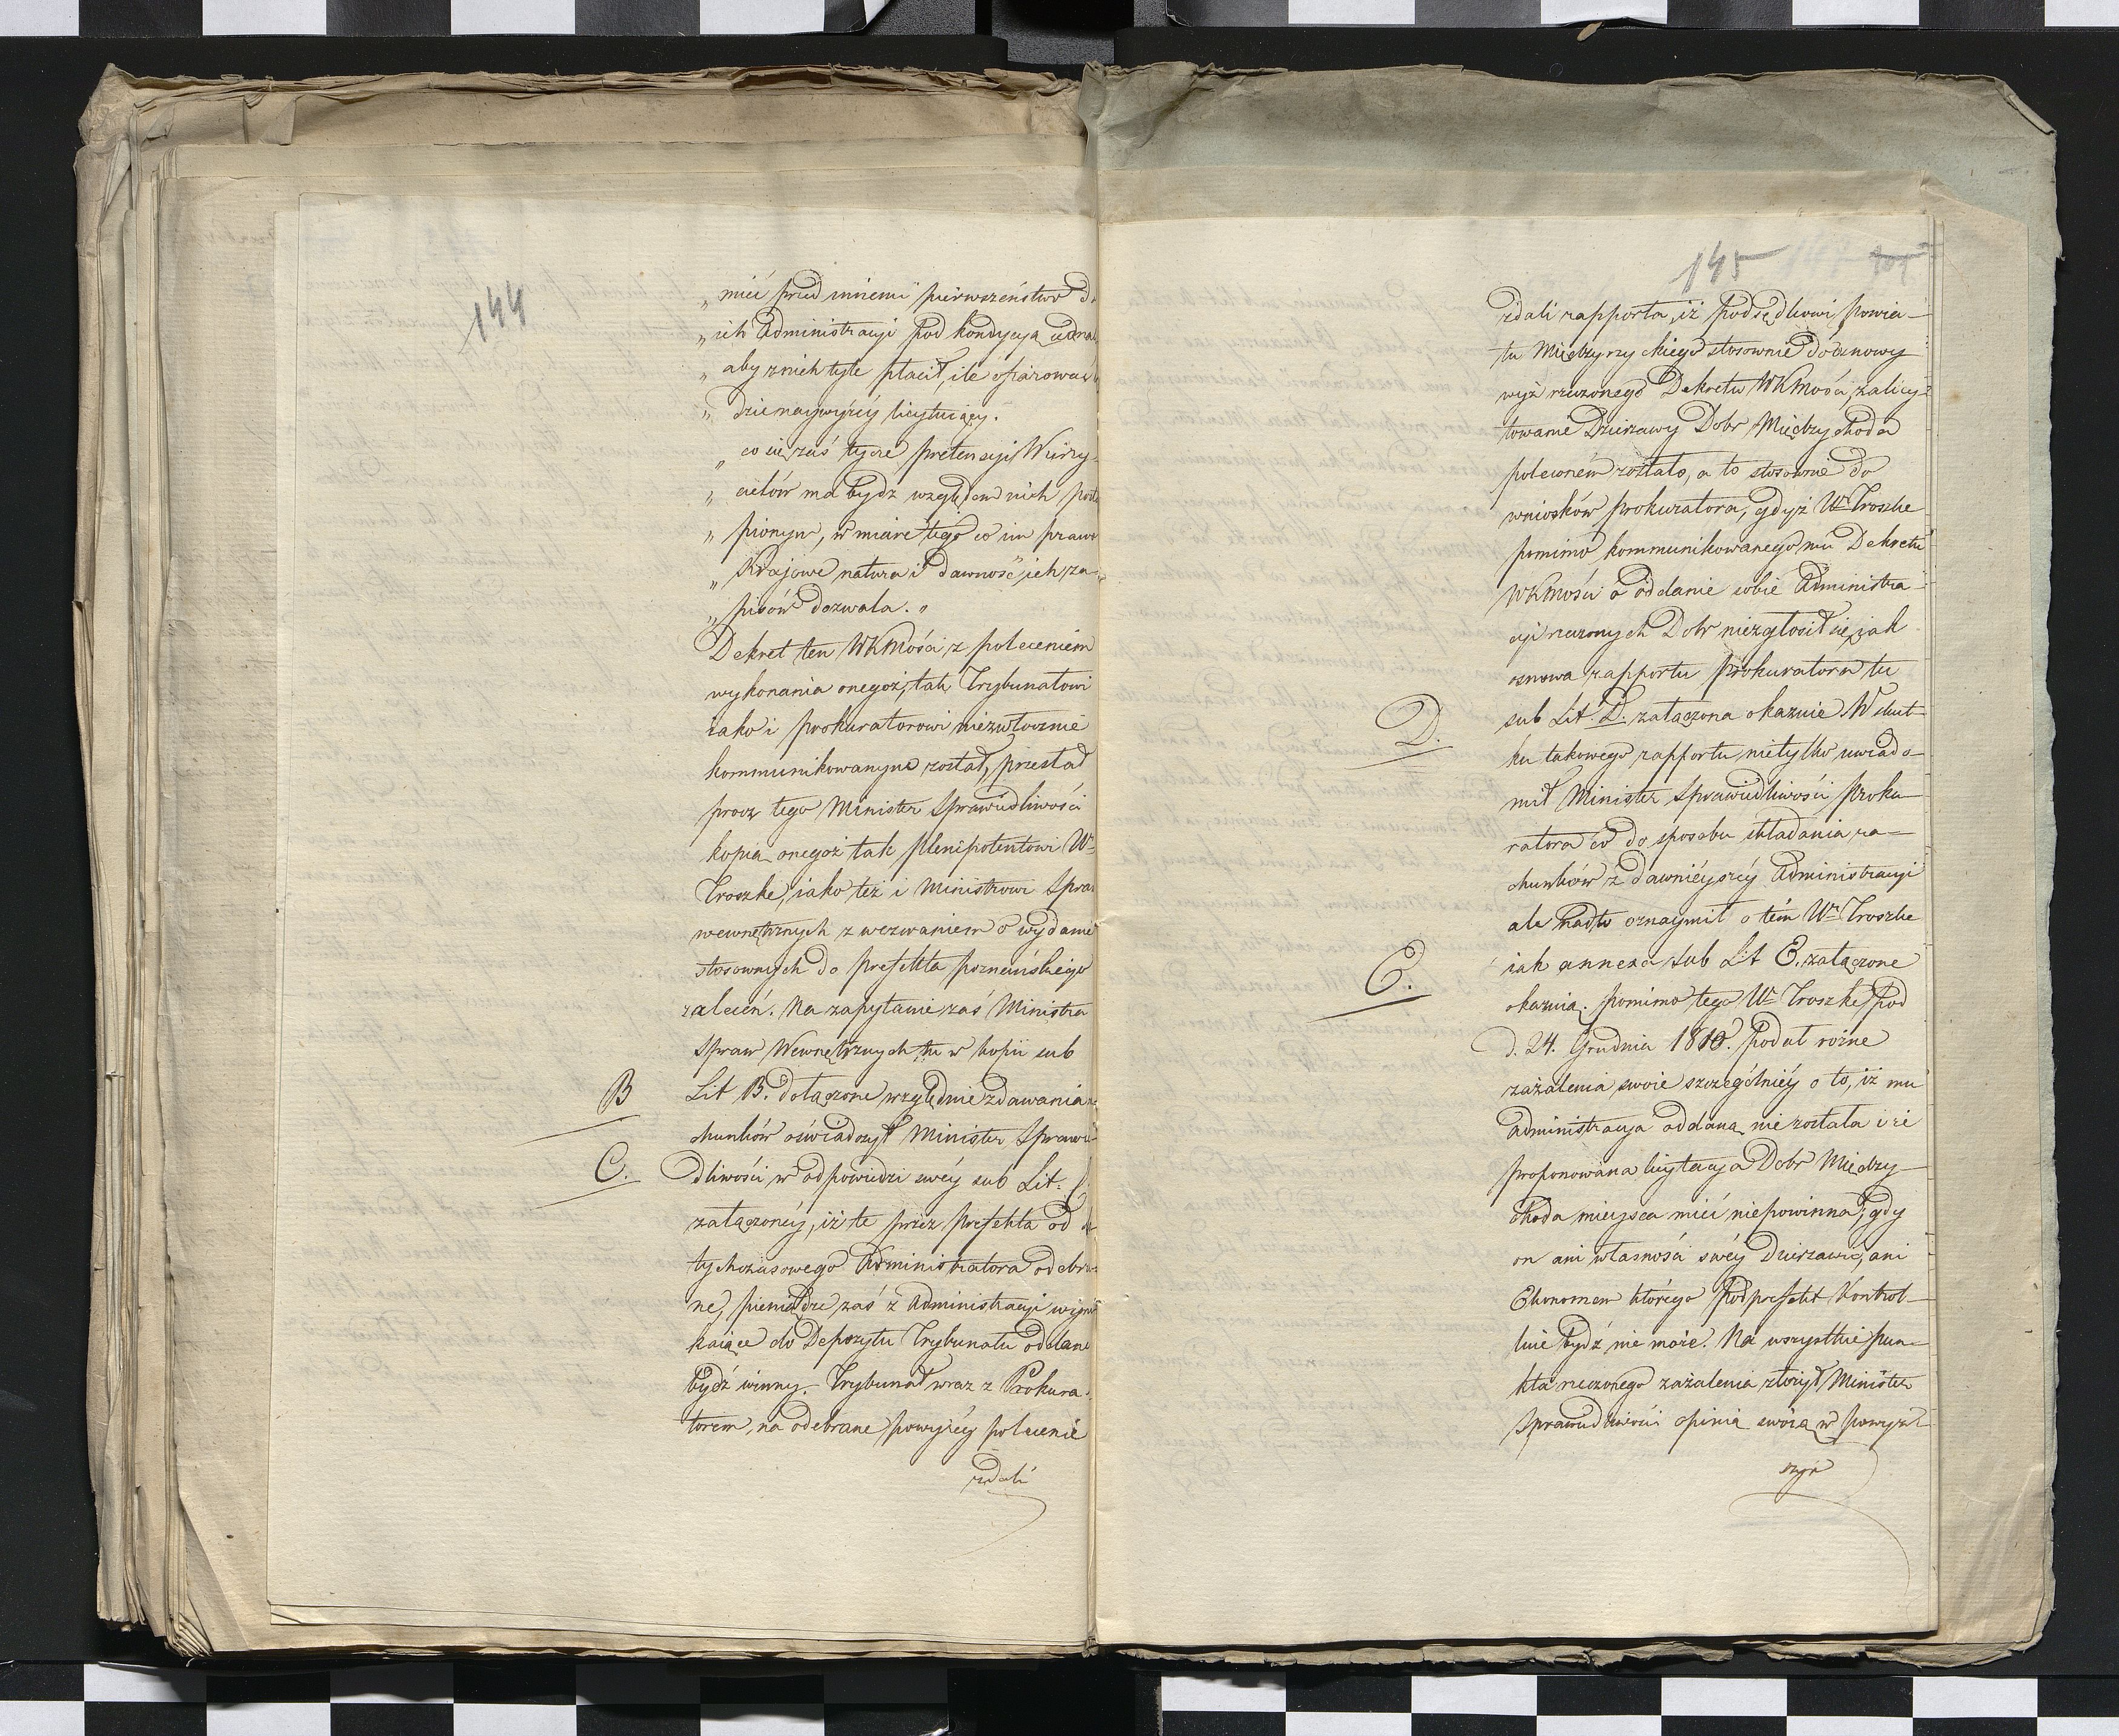 144
„ mieć przed innemi pierwszeństwo d
„ ich Administracyi pod kondycyą
„ aby z nich tyle płacił, ile ofiarował
„ dzie naywyżéy licytuiący.
„ co się zaś tycze pretensyi Wierzy-
„ cielów ma bydz względem nich postą
„ pionym, w miarę tego co im prawo
„ Krajowe natura i dawność ich za-
„ pisów dozwala. „
Dekret ten WKMości z poleceniem
wykonania onegoż, tak Trybunałowi
iako i prokuratorowi niezwłocznie
kommunikowanym został, przesłał
procz tego Minister Sprawiedliwości
kopią onegoż tak Plenipotentowi Wo
Troszke, iako też i Ministrowi Spraw
wewnętrznych z wezwaniem o wydanie
stosownych do prefekta poznańskiego
zaleceń. Na zapytanie zaś Ministra
Spraw Wewnętrznych tu w kopii sub
B
Lit B. dołączone względnie zdawania
chunków oświadczył Minister Sprawie
C.
dliwości w odpowiedzi swéy sub Lit. C
załączonéy, iż te przez prefekta od do
tychczasowego Administratora odebra
ne, pieniądze zaś z Administracyi wyni
kaiące do Depozytu Trybunału oddane
bydź winny. Trybunał wraz z Prokura
torem, na odebrane powyżéy polecenie
zdali
145
zdali rapporta, iż podsędkowi powia-
tu Międzyrzyckiego stosownie do osnowy
wyż rzeczonego Dekretu WKMości, zalicy-
towanie Dzierzawy Dobr Międzychoda
poleconém zostało, a to stosownie do
wniosków prokuratora, gdyż Wny Troszke
pomimo kommunikowanego mu Dekretu
WKMości o oddanie sobie Administra-
cyi rzeczonych Dobr niezgłosił się, jak
osnowa rapportu prokuratora tu
D.
sub Lit. D. załączona okazuie W skut-
ku takowego rapportu nietylko uwiado-
mił Minister Sprawiedliwości proku-
ratora co do sposobu składania ra-
chunków z dawniéyszéy Administracyi
ale nadto oznaymił o tém Wn Troszke
E.
iak annexa sub Lit E. załączone
okazuią. pomimo tego Wn Troszke pod
d. 24. Grudnia 1810. podał różne
zażalenia swoie szczególniéy o to, iż mu
administracya oddaną nie została i że
proponowana licytacya Dobr Między-
choda mieysca mieć niepowinna, gdy
on ani własności swéy Dzierzawcą, ani
Ekonomem którego podprefekt kontrol-
luie bydź nie może. Na wszystkie pun-
kta rzeczonego zażalenia złożył Minister
Sprawiedliwości opinią swoią w powyż-
szym